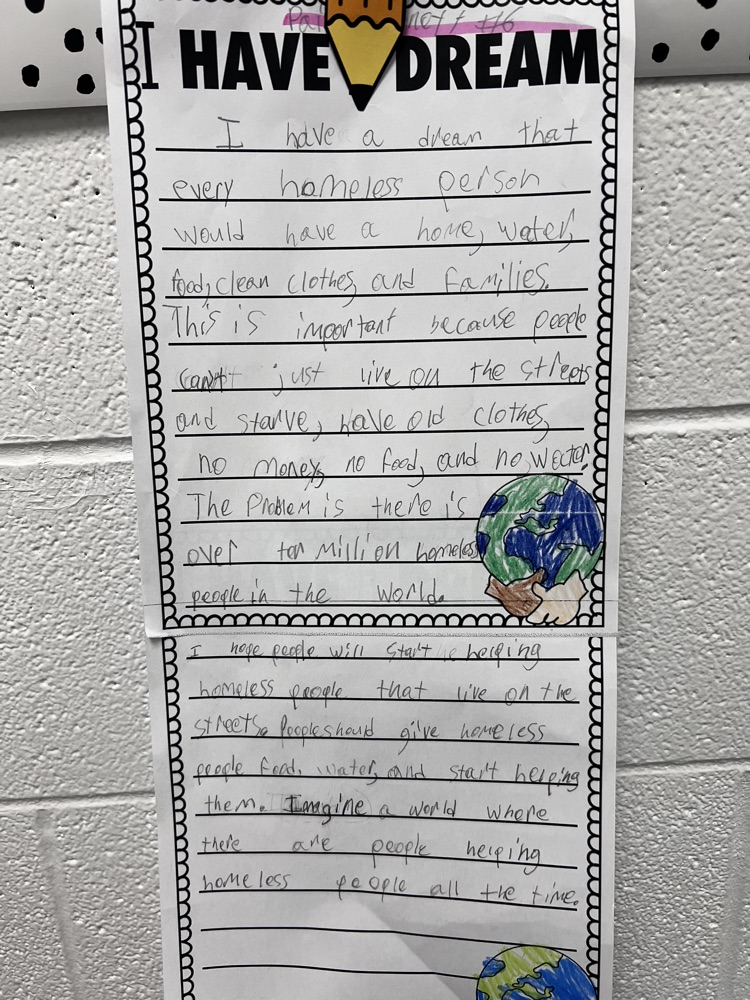 I HAVE DREAM
I have a dream that
every homeless person
would have a home, water,
food, clean clothes, and families.
This is important because people
can't just live on the streets
and starve, have old clothes,
no money, no food, and no, water.
The Problem is there is
over million homeless
people in the world.
I hope people will start helping
homeless people that live on the
streets. People should give homeless
people food, water, and start helping
them. Imagine a world where
there are people helping
homeless people all the time.